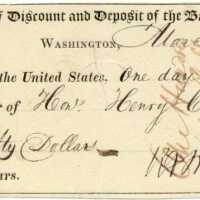 f Discount and Deposit of the Ba
WASHINGTON, Nove
the United States, One day
r of Hon. Henry C
ty Dollars
rrs.